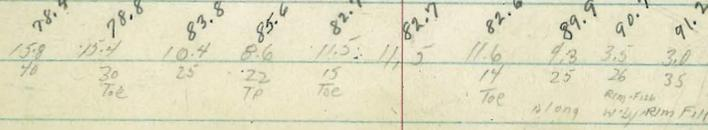 78.4 78.8 83.8 85.6 82.7 82.7 82.6 89.9 90.7 91.2
15.8 15.4 10.4 8.6 11.5 11.5 11.6 4.3 3.5 3.0
40 30 25 22 15 14 25 26 35
Toe TP Toe Toe Rim-Fill
along W-ly Rim Fill